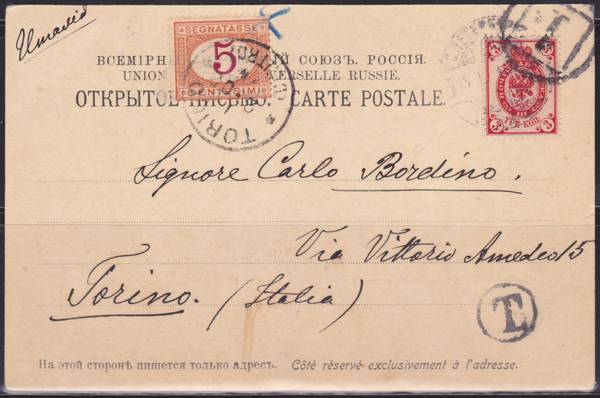 SEGNATASSE
5
CENTESIMI
ВСЕМІРН ІЙ СОЮЗЪ. РОССІЯ.
UNION ERSELLE RUSSIE.
ОТКРЫТОЕ ПИСЬМО. CARTE POSTALE.
TORINO
3 3
ТРИ КОП.
T
Signore Carlo Bordino.
Via Vittorio Amedeo 15
Torino. (Italia)
T.
На этой сторонѣ пишется только адресъ. Côté réservé exclusivement à l'adresse.